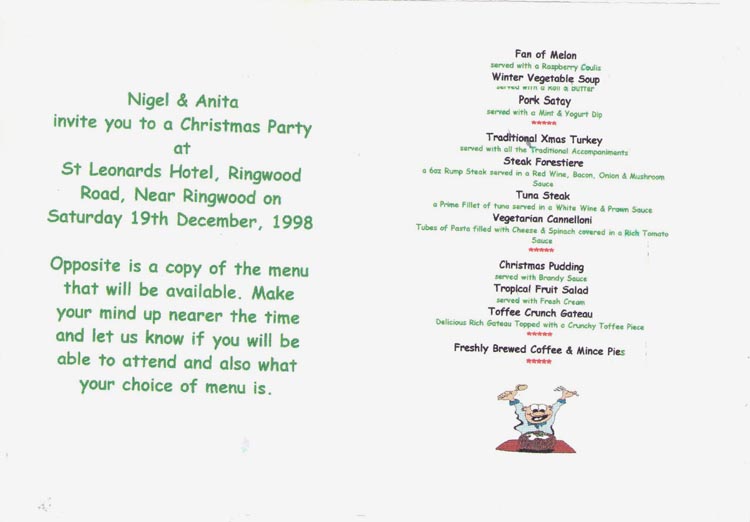 Nigel & Anita
invite you to a Christmas Party
at
St Leonards Hotel, Ringwood
Road, Near Ringwood on
Saturday 19th December, 1998
Opposite is a copy of the menu
that will be available. Make
your mind up nearer the time
and let us know if you will be
able to attend and also what
your choice of menu is.
Fan of Melon
served with a Raspberry Coulis
Winter Vegetable Soup
served with a Roll & Butter
Pork Satay
served with a Mint & Yogurt Dip
*****
Traditional Xmas Turkey
served with all the Traditional Accompaniments
Steak Forestiere
a 6oz Rump Steak served in a Red Wine, Bacon, Onion & Mushroom
Sauce
Tuna Steak
a Prime Fillet of tuna served in a White Wine & Prawn Sauce
Vegetarian Cannelloni
Tubes of Pasta filled with Cheese & Spinach covered in a Rich Tomato
Sauce
*****
Christmas Pudding
served with Brandy Sauce
Tropical Fruit Salad
served with Fresh Cream
Toffee Crunch Gateau
Delicious Rich Gateau Topped with a Crunchy Toffee Piece
*****
Freshly Brewed Coffee & Mince Pies
*****